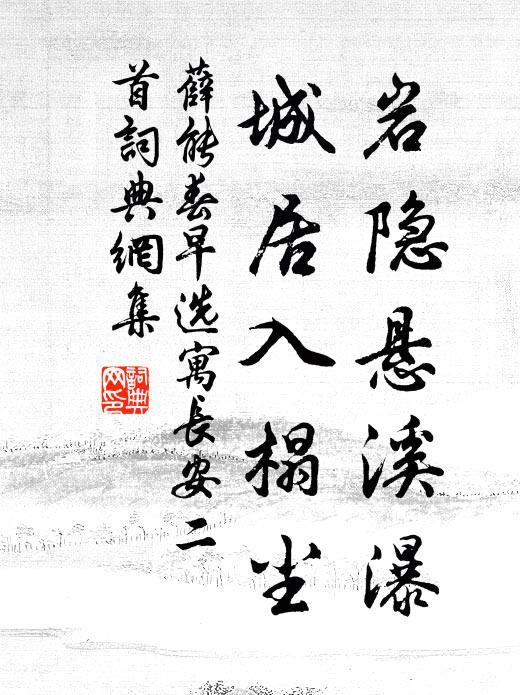 岩隐悬溪瀑
城居入榻尘
薛能春早选寓长安二
首詞典網集
詞典
网印